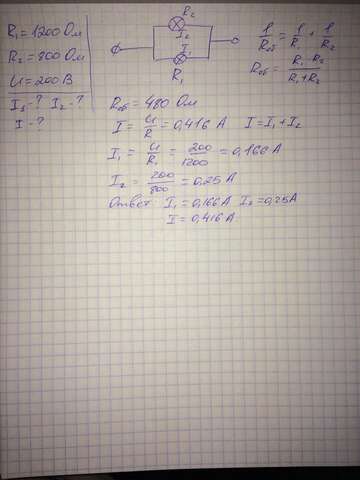 R₁ = 1200 Ом
R₂ = 800 Ом
U = 200 В
I₁ - ? I₂ - ?
I - ?
R₂
I₂
I₁
R₁
1/Rоб = 1/R₁ + 1/R₂
Rоб = R₁ · R₂ / R₁ + R₂
Rоб = 480 Ом
I = U/R = 0,416 А I = I₁ + I₂
I₁ = U/R₁ = 200/1200 = 0,166 А
I₂ = 200/800 = 0,25 А
Ответ I₁ = 0,166 А I₂ = 0,25 А
I = 0,416 А